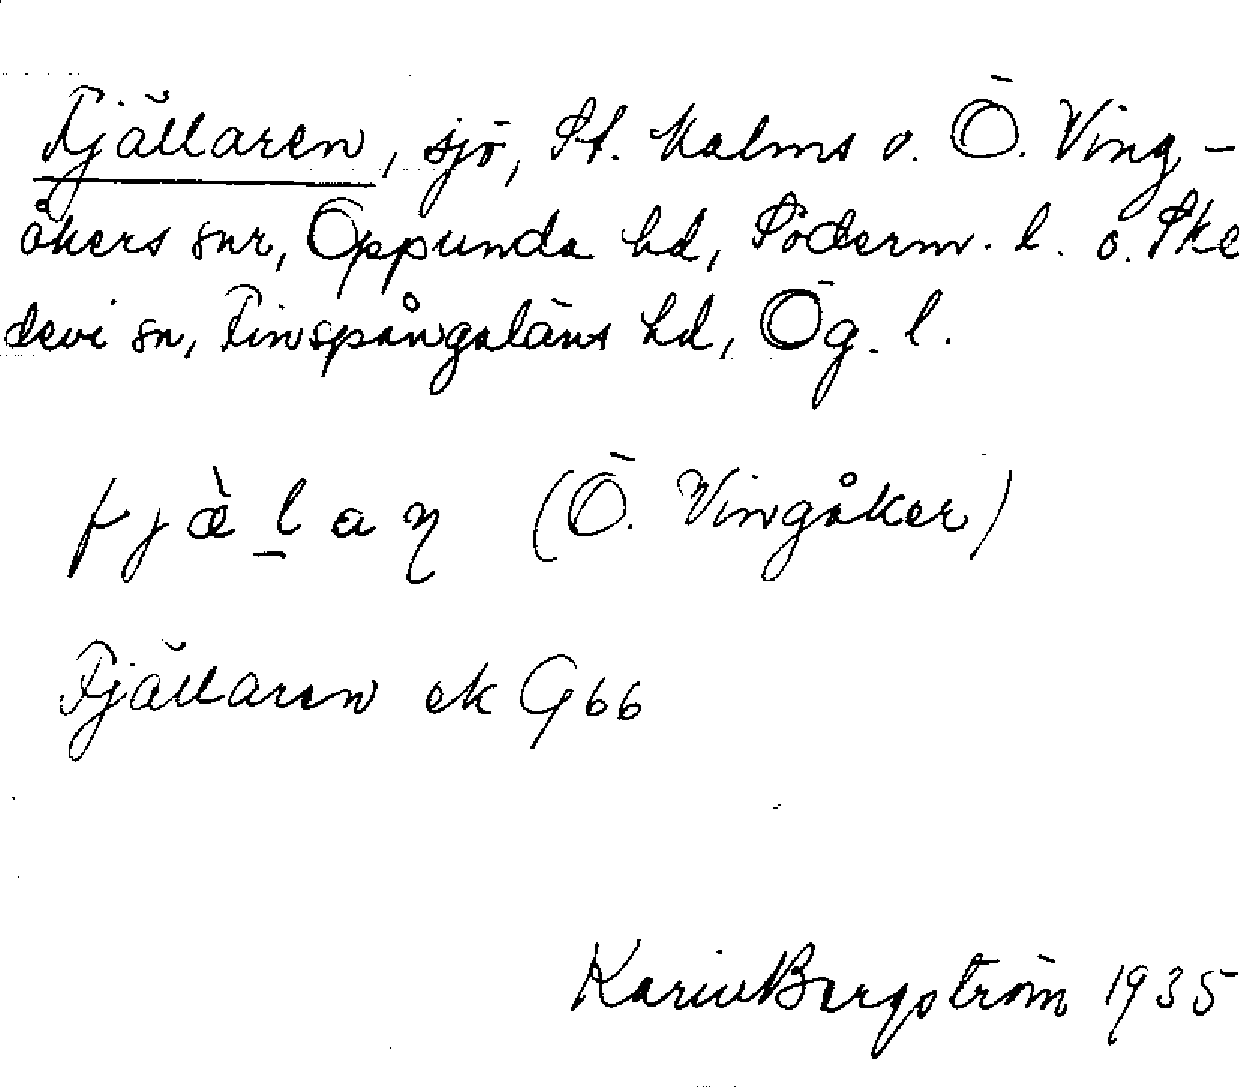 Fjällaren, sjö, St. Malms o. Ö. Ving-
åkers snr, Oppunda hd, Söderm. l. o. Ske
devi sn, Finspångaläns hd, Ög. l.
fjæ̀l̠aɳ (Ö. Vingåker)
Fjällaren ek G66
Karin Bergström 1935